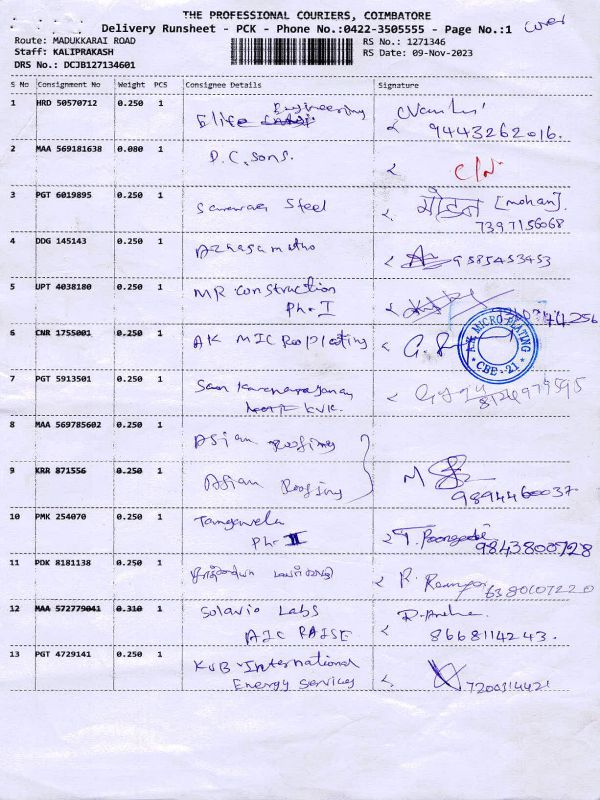 THE PROFESSIONAL COURIERS, COIMBATORE
Delivery Runsheet - PCK - Phone No.:0422-3505555 - Page No.:1
cover
Route: MADUKKARAI ROAD RS No.: 1271346
Staff: KALIPRAKASH RS Date: 09-Nov-2023
DRS No.: DCJB127134601
S No Consignment No Weight PCS Consignee Details Signature
1 HRD 50570712 0.250 1 Elite Engineering
9443262016.
2 MAA 569181638 0.080 1 D.C. Sons. C/N
3 PGT 6019895 0.250 1 Steel मोहन [mohan]
7397156068
4 DDG 145143 0.250 1 9585453453
5 UPT 4038180 0.250 1 MR Construction
Ph-I
6 CNR 1755001 0.250 1 AK MICRO Plating
A.K MICRO PLATING
* CBE-21 *
7 PGT 5913501 0.250 1
KVK.
8 MAA 569785602 0.250 1 Asian Roofing
9 KRR 871556 0.250 1 Asian Roofing
9894460037
10 PMK 254070 0.250 1 Tangavelu T. Poongodi
Ph-II 9843800728
11 PDK 8181138 0.250 1
12 MAA 572779041 0.310 1 Solavio Labs
AIC RAISE 8668114243.
13 PGT 4729141 0.250 1 KVB-International
Energy Services 7200314421